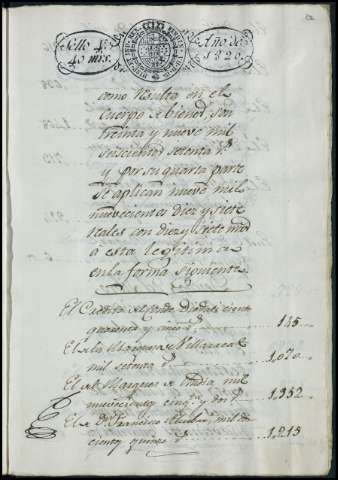 Sello 4º
40 mrs.
Año de
1820.
como resulta en el
cuerpo de bienes, son
treinta y nueve mil
seiscientos setenta rs
y por su quarta parte
se aplican nueve mil
nuevecientos diez y siete
reales con diez y siete mrs
a esta legitima
en la forma siguiente
El Credito del Conde
cinco rs 145
El de la Marquesa de Villa
mil setenta rs 1,070
El del Marques de mil
nuevecientos cinqta y dos rs 1,952
El de Dn Francisco mil dos
cientos quince rs 1,215